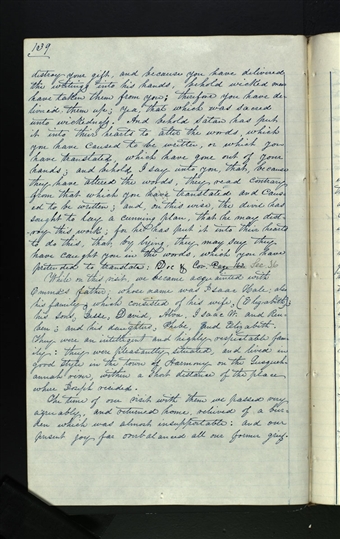 139
distroy your gift, and because you have delivered
the writings into his hands, behold wicked men
have taken them from you; therefore you have de-
livered them up; yea, that which was sacred
unto wickedness. And behold Satan has put
it into their hearts to alter the words, which
you have caused to be written, or which you
have translated, which have gone out of your
hands; and behold, I say unto you, that, because
they have altered the words, they read contrary
from that which you have translated and caus-
ed to be written; and, on this wise, the devil has
sought to lay a cunning plan, that he may dist-
roy this work; for he has put it into their hearts
to do this, that, by lying, they may say they
have caught you in the words, which you have
pretended to translate: Doc & Cov. Page
While on this visit, we became acquainted with
Emma's father, whose name was Isaac Hale; also
his family, which consisted of his wife, (Elizabeth);
his sons, Jesse, David, Alva, Isaac W. and Reu-
ben; and his daughters, Phebe, and Elizabeth.
They were an intelligent and highly respectable fam-
ily: they were pleasantly situated, and lived in
good style in the town of Harmony on the Susqueh-
annah river, within a short distance of the place
where Joseph resided.
The time of our visit with them we passed very
agreeably, and returned home, relieved of a bur-
den which was almost insupportable: and our
present joy far overbalanced all our former grief.